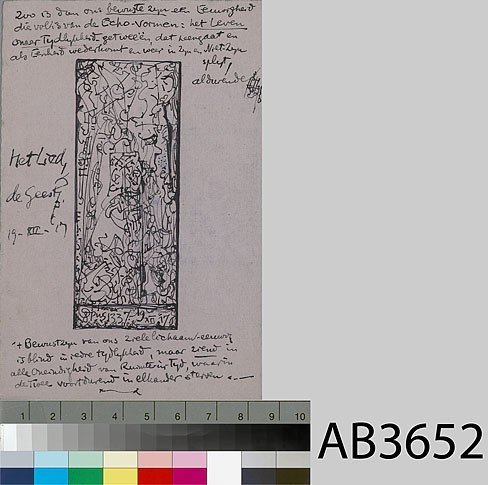 zoo is dan ons bewuste zyn een Eeuwigheid
die vol is van de Echo-Vormen: het Leven
onzer Tydlykheid getweeën, dat heengaat en
als Eenheid wederkomt en weer in Zyn en Niet Zyn
splyt,
aldurende
Het Lied,
de Geest
19-XII-17
Bewustzyn van ons ziele lichaam-eeuwig
is blind in zedre tydlykheid, maar ziend in
alle Oneindigheid van Ruimte in Tyd, waarin
de twee voortdurend in elkander sterven
1 2 3 4 5 6 7 8 9 10
AB3652